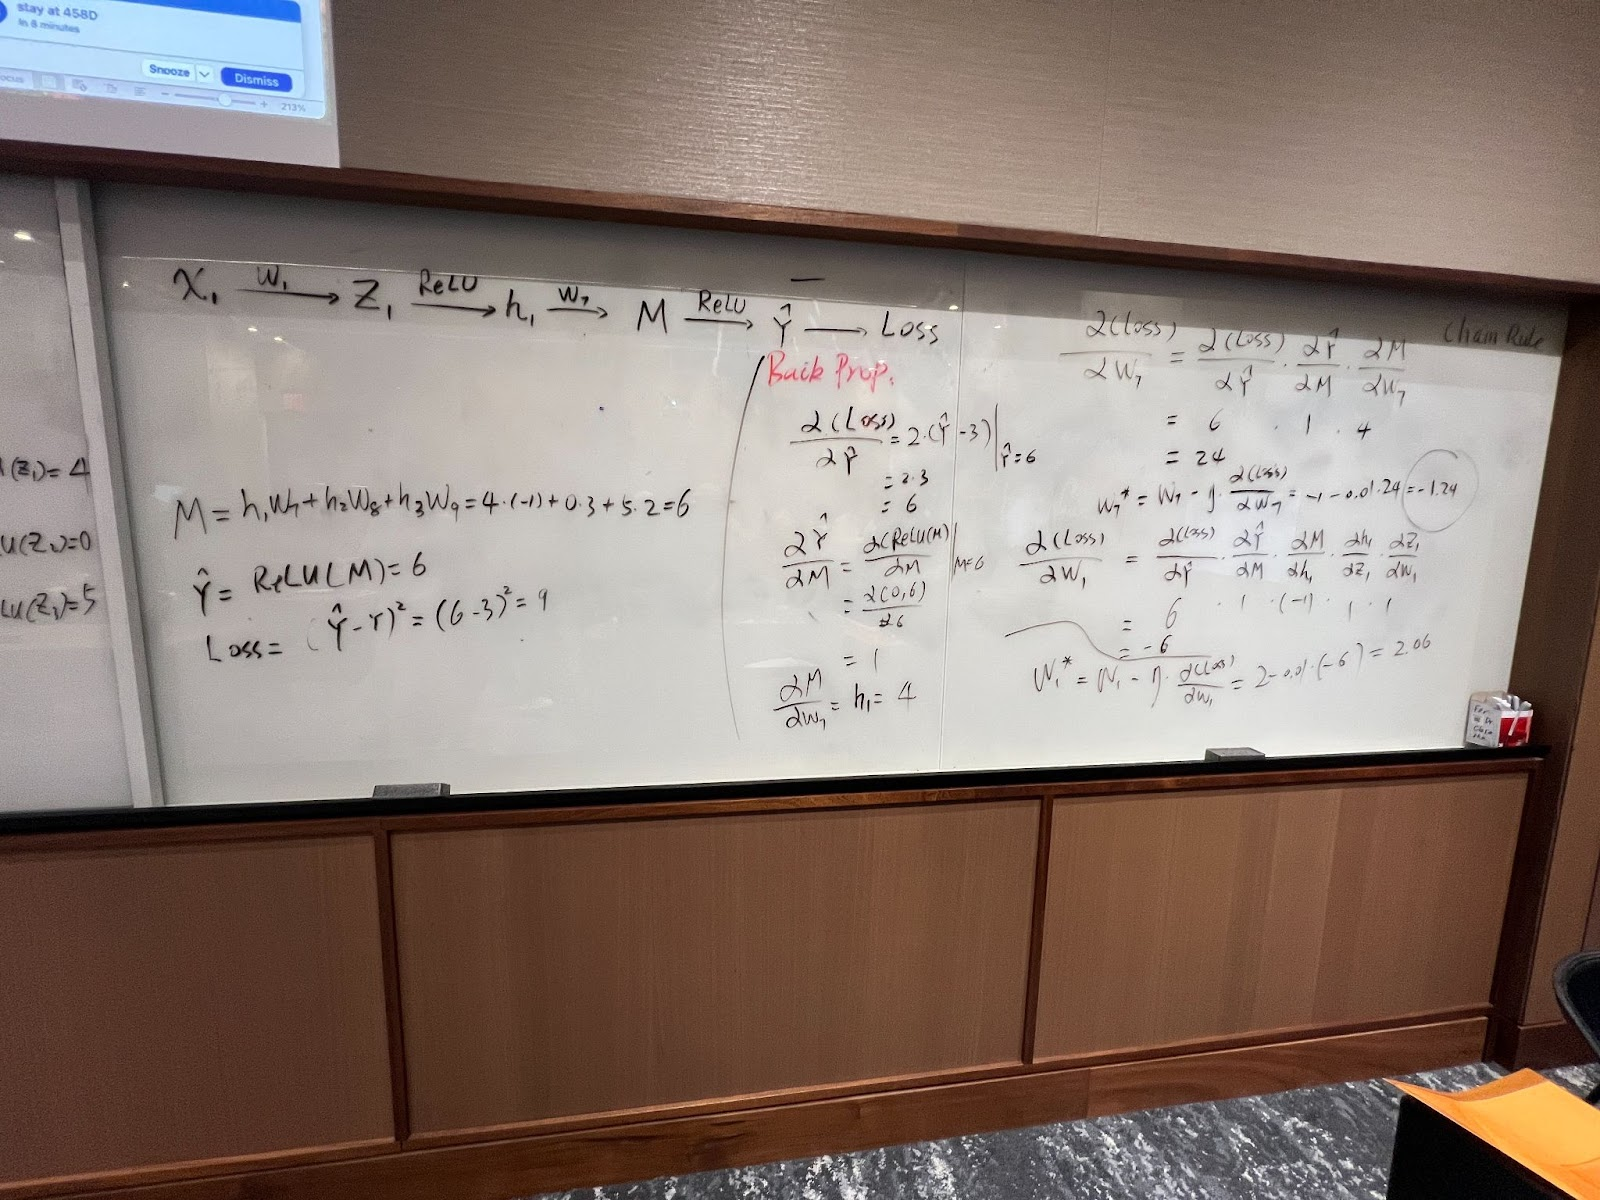 stay at 458D
in 8 minutes
Snooze
Dismiss
ocus
213%
(Z₁)=4
LU(Z₂)=0
LU(Z₃)=5
X₁ —W₁→ Z₁ —ReLU→ h₁ —W₇→ M —ReLU→ Ŷ → Loss
M = h₁W₇+h₂W₈+h₃W₉=4·(-1)+0·3+5·2=6
Ŷ = ReLU(M)=6
Loss= (Ŷ-Y)²=(6-3)²=9
Back Prop.
∂(Loss)/∂Ŷ = 2·(Ŷ-3)|Ŷ=6
= 2·3
= 6
∂Ŷ/∂M = ∂(ReLU(M))/∂M |M=6
= ∂(0,6)/∂6
= 1
∂M/∂W₇ = h₁ = 4
Chain Rule
∂(Loss)/∂W₇ = ∂(Loss)/∂Ŷ · ∂Ŷ/∂M · ∂M/∂W₇
= 6 · 1 · 4
= 24
W₇* = W₇ - η·∂(Loss)/∂W₇ = -1-0.01·24=-1.24
∂(Loss)/∂W₁ = ∂(Loss)/∂Ŷ · ∂Ŷ/∂M · ∂M/∂h₁ · ∂h₁/∂Z₁ · ∂Z₁/∂W₁
= 6 · 1 · (-1) · 1 · 1
= -6
W₁* = W₁ - η·∂(Loss)/∂W₁ = 2-0.01·(-6) = 2.06